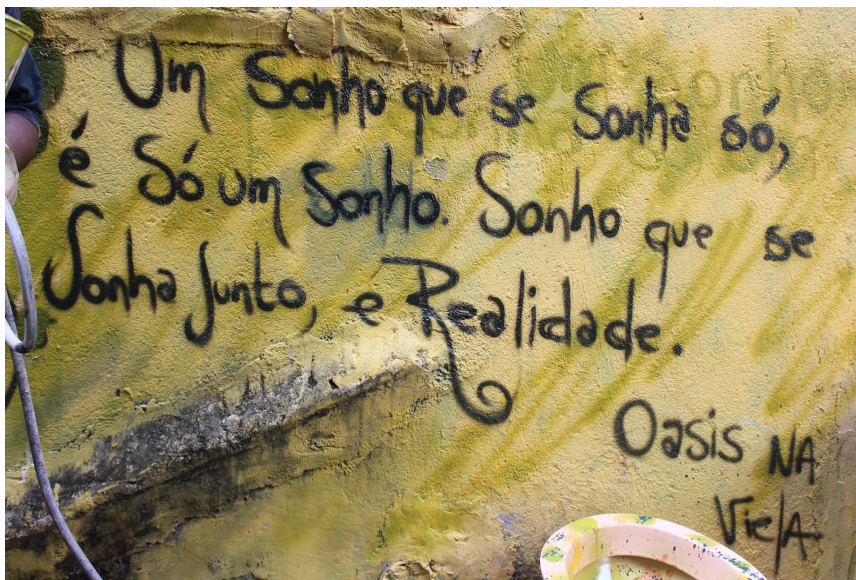 Um Sonho que se Sonha só,
é Só um Sonho. Sonho que se
Sonha Junto, e Realidade.
Oasis NA
VielA